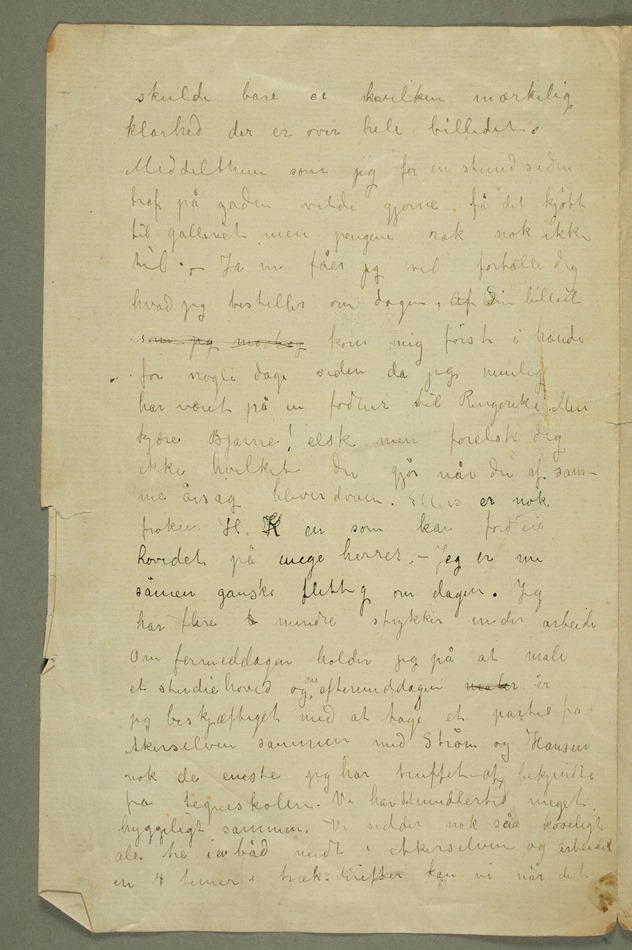 skulde bare se hvilken mærkelig
klarhed der er over hele billedet.
Middelthun som jeg for en stund siden
traf på gaden vilde gjerne få det kjøbt
til galleriet men pengene rak nok ikke
til. – Ja nu får jeg vel fortælle dig
hvad jeg bestiller om dagen, af Din billedt
som jeg kom mig först i hænde
for nogle dage siden da jeg nemlig
har været på en fodtur til Ringerike. Men
kjære Bjarne! elsk men forelsk dig
ikke hvilket du gjør når du af sam-
me årsag bliver doven. Ellers er nok
frøken H. K en som kan fordreie
hovedet på unge herrer. – Jeg er nu
såmen ganske flittig om dagen. Jeg
har flere mindre stykker under arbeide
Om formiddagen holder jeg på at male
et studiehoved og om eftermiddagen er
jeg beskjæftiget med at tage et parti fra
Akerselven sammen med Ström og Hansen
nok de eneste jeg har truffet af bekjendte
fra tegneskolen. Vi har det imidlertid meget
hyggeligt sammen. Vi sidder nok såe koseligt
alle tre i en båd midt i Akerselven og arbeidet
en 4 timer i træk. derefter kan vi når det